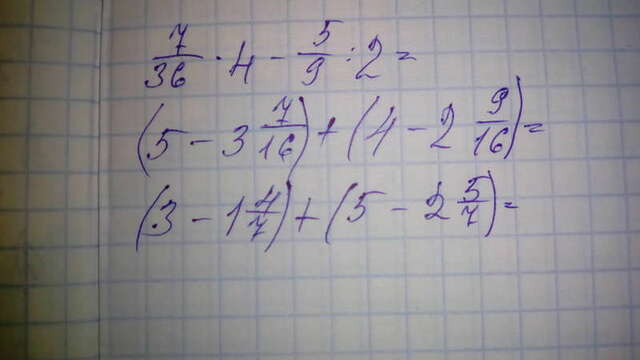 7/36 · 4 - 5/9 : 2 =
(5 - 3 7/16) + (4 - 2 9/16) =
(3 - 1 4/7) + (5 - 2 5/7) =